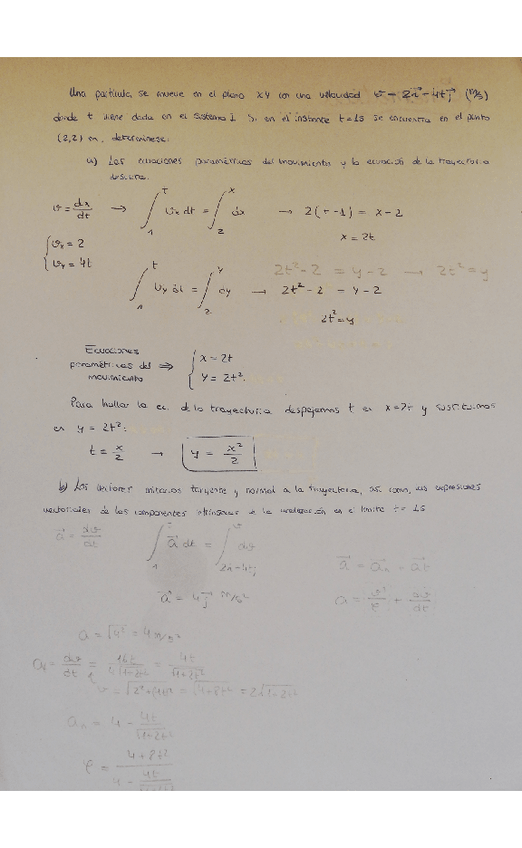 Una partícula se mueve en el plano XY con una velocidad v⃗ = 2i⃗ - 4t j⃗ (m/s)
donde t viene dada en el sistema I. Si en el instante t=1s se encuentra en el punto
(2,2) m, determínese:
a) Las ecuaciones paramétricas del movimiento y la ecuación de la trayectoria
descrita.
v = dx/dt → ∫₁ᵗ vₓ dt = ∫₂ˣ dx → 2(t-1) = x-2
x = 2t
{ vₓ = 2
{ v_y = 4t
2t²-2 = y-2 → 2t² = y
∫₁ᵗ v_y dt = ∫₂ʸ dy → 2t²-2 = y-2
2t² = y
Ecuaciones
paramétricas del ⇒ { x = 2t
movimiento { y = 2t²
Para hallar la ec. de la trayectoria despejamos t en x=2t y sustituimos
en y = 2t²:
t = x/2 → y = x²/2
b) Los vectores unitarios tangente y normal a la trayectoria, así como, las expresiones
vectoriales de las componentes intrínsecas de la aceleración en el t=1s
a⃗ = dv⃗/dt ∫₁ᵗ a⃗ dt = ∫ dv⃗
a⃗ = a⃗ₙ + a⃗t
a⃗ = 4j⃗ m/s²
a = v²/ρ + dv/dt
a = √4² = 4 m/s²
aₜ = dv/dt = 16t/4√1+2t² = 4t/√1+2t²
aₙ = 4 - 4t/√1+2t²